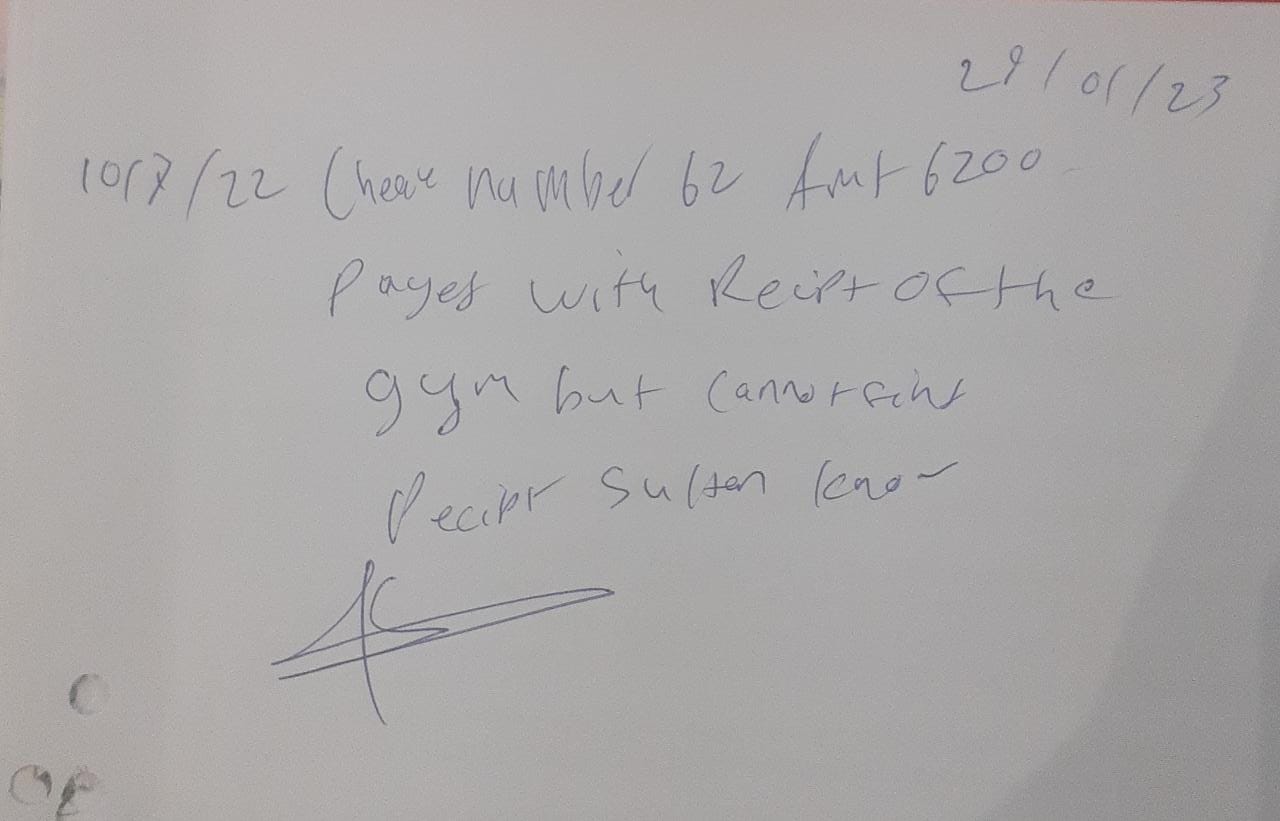 29/01/23
10/7/22 Cheak number 62 Amt 6200
Payed with Recipt of the
gym but cannot find
Recipt Sultan know